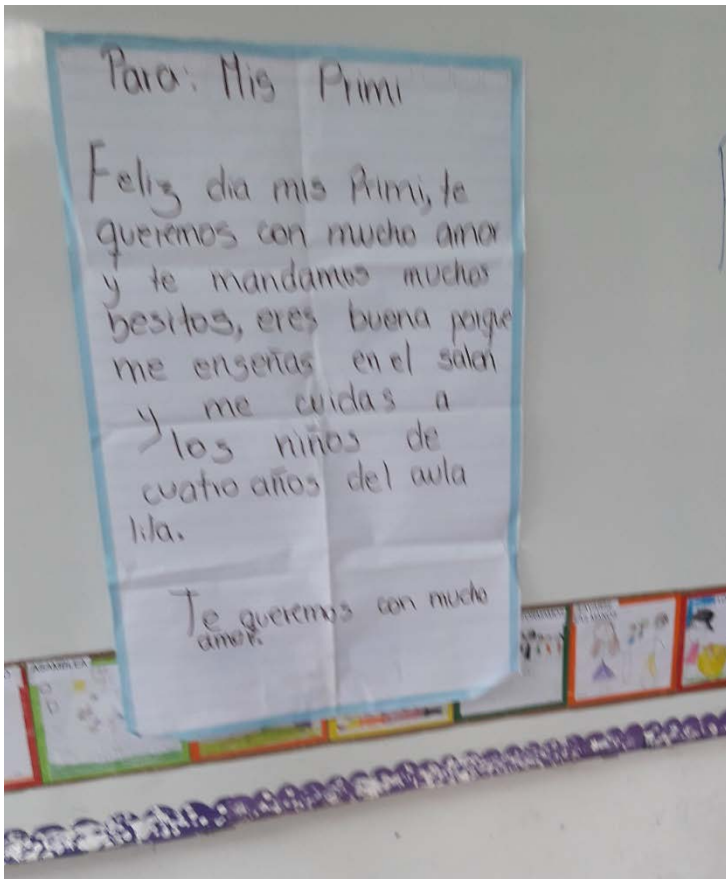 Para: Mis Primi
Feliz dia mis Primi, te
queremos con mucho amor
y te mandamos muchos
besitos, eres buena porque
me enseñas en el salon
y me cuidas a
los niños de
cuatro años del aula
lila.
Te queremos con mucho
amor.
ASAMBLEA